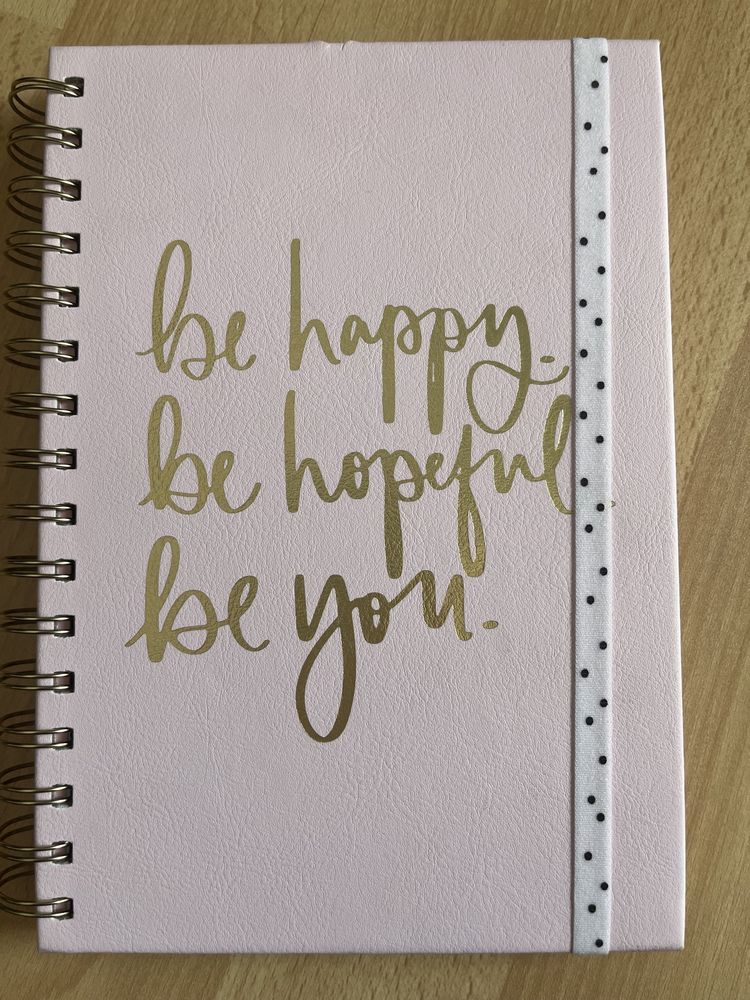 be happy.
be hopeful.
be you.